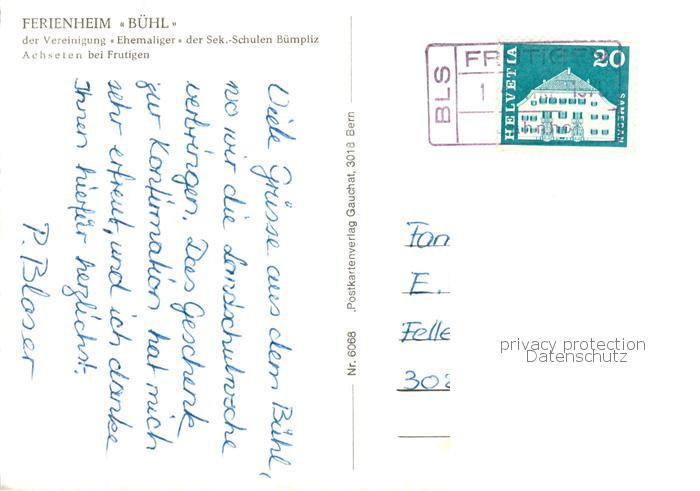 FERIENHEIM «BÜHL»
der Vereinigung «Ehemaliger» der Sek.-Schulen Bümpliz
Achseten bei Frutigen
Viele Grüsse aus dem Bühl,
wo wir die Landschulwoche
verbringen. Das Geschenk
zur Konfirmation hat mich
sehr erfreut, und ich danke
Ihnen hierfür herzlichst.
P. Blaser
Nr. 6068 Postkartenverlag Gauchat, 3018 Bern
BLS
HELVETIA
20
SAMEDAN
Fam
E.
Felle
302
privacy protection
Datenschutz